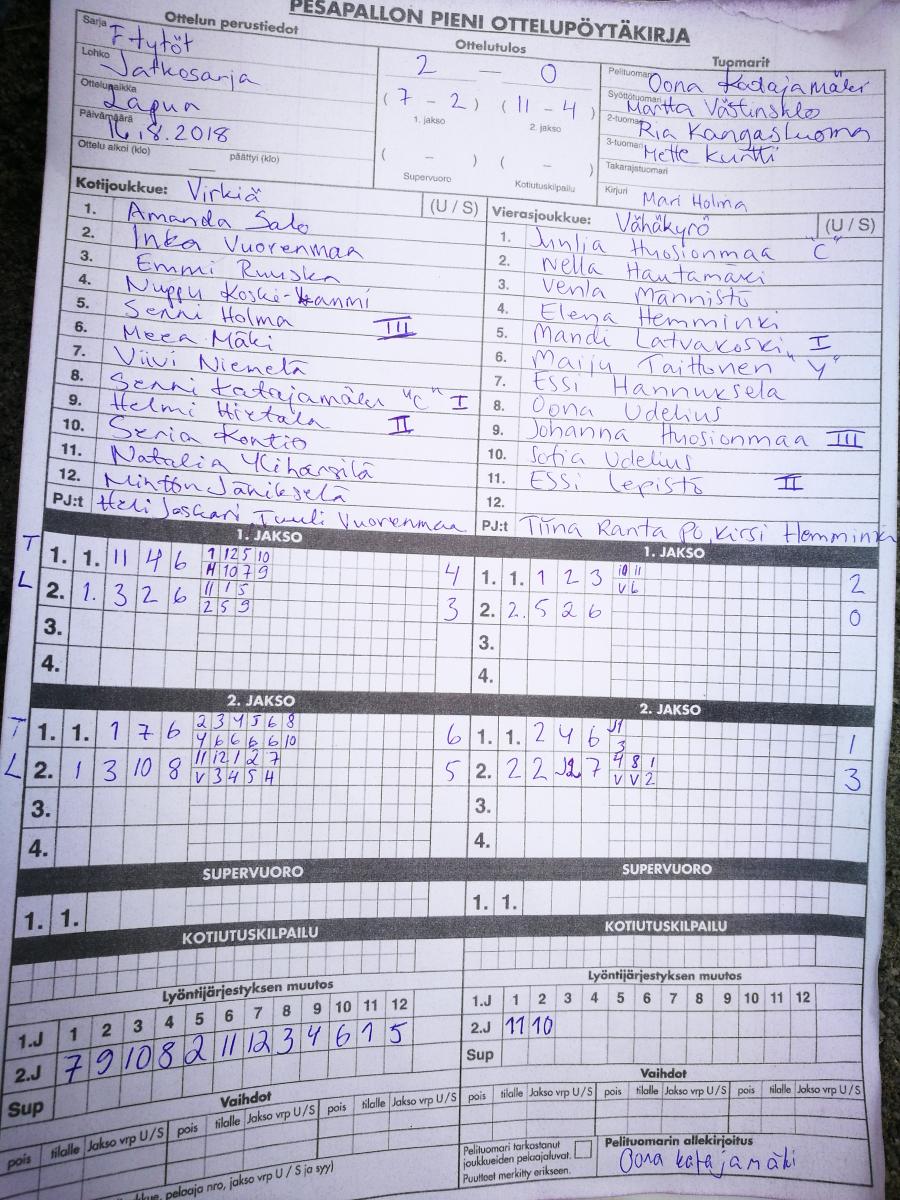 PESÄPALLON PIENI OTTELUPÖYTÄKIRJA
Ottelun perustiedot
Sarja F-tytöt
Lohko Jatkosarja
Ottelupaikka Lapua
Päivämäärä 16.8.2018
Ottelu alkoi (klo) päättyi (klo)
Ottelutulos
2 — 0
( 7 - 2 ) ( 11 - 4 )
1. jakso 2. jakso
( - ) ( - )
Supervuoro Kotiutuskilpailu
Tuomarit
Pelituomari Oona Katajamäki
Syöttötuomari Martta
2-tuomari Ria Kangasluoma
3-tuomari Mette Kuntti
Takarajatuomari
Kirjuri Mari Holma
Kotijoukkue: Virkiä (U / S)
1. Amanda Salo
2. Inka Vuorenmaa
3. Emmi Ruuska
4. Nuppu Koski-Vanmi
5. Senni Holma III
6. Meea Mäki
7. Viivi Niemelä
8. Senni Katajamäki "C" I
9. Helmi Hietala II
10. Senia Kontio
11. Natalia Ylihärsilä
12. Minttu Jänikselä
PJ:t Heli Joskari, Tuuli Vuorenmaa
Vierasjoukkue: Vähäkyrö (U / S)
1. Junlia Huosionmaa "C"
2. Nella Hautamäki
3. Venla Männistö
4. Elena Hemminki
5. Mandi Latvakoski I
6. Maiju Taittonen "Y"
7. Essi Hannuksela
8. Oona Udelius
9. Johanna Huosionmaa III
10. Sofia Udelius
11. Essi Lepistö II
12.
PJ:t Tiina Rantapo, Kirsi Hemminki
1. JAKSO
T 1. 1. 11 4 6 1 12 5 10 4
11 10 7 9
L 2. 1. 3 2 6 11 1 5 3
2 5 9
3.
4.
1. JAKSO
1. 1. 1 2 3 10 11 2
V 6
2. 2. 5 2 6 0
3.
4.
2. JAKSO
T 1. 1. 1 7 6 2 3 4 5 6 8 6
4 6 6 6 6 10
L 2. 1 3 10 8 11 12 1 2 7 5
V 3 4 5 4
3.
4.
2. JAKSO
1. 1. 2 4 6 J1 1
3
2. 2 2 J2 7 4 8 1 3
V V 2
3.
4.
SUPERVUORO
1. 1.
SUPERVUORO
1. 1.
KOTIUTUSKILPAILU
KOTIUTUSKILPAILU
Lyöntijärjestyksen muutos
1.J 1 2 3 4 5 6 7 8 9 10 11 12
2.J 7 9 10 8 2 11 12 3 4 6 1 5
Sup
Lyöntijärjestyksen muutos
1.J 1 2 3 4 5 6 7 8 9 10 11 12
2.J 11 10
Sup
Vaihdot
pois tilalle Jakso vrp U / S pois tilalle Jakso vrp U / S pois tilalle Jakso vrp U / S
Vaihdot
pois tilalle Jakso vrp U / S pois tilalle Jakso vrp U / S pois tilalle Jakso vrp U / S
pelaaja nro, jakso vrp U / S ja syy)
Pelituomari tarkastanut
joukkueiden pelaajaluvat.
Puutteet merkitty erikseen.
Pelituomarin allekirjoitus
Oona katajamäki